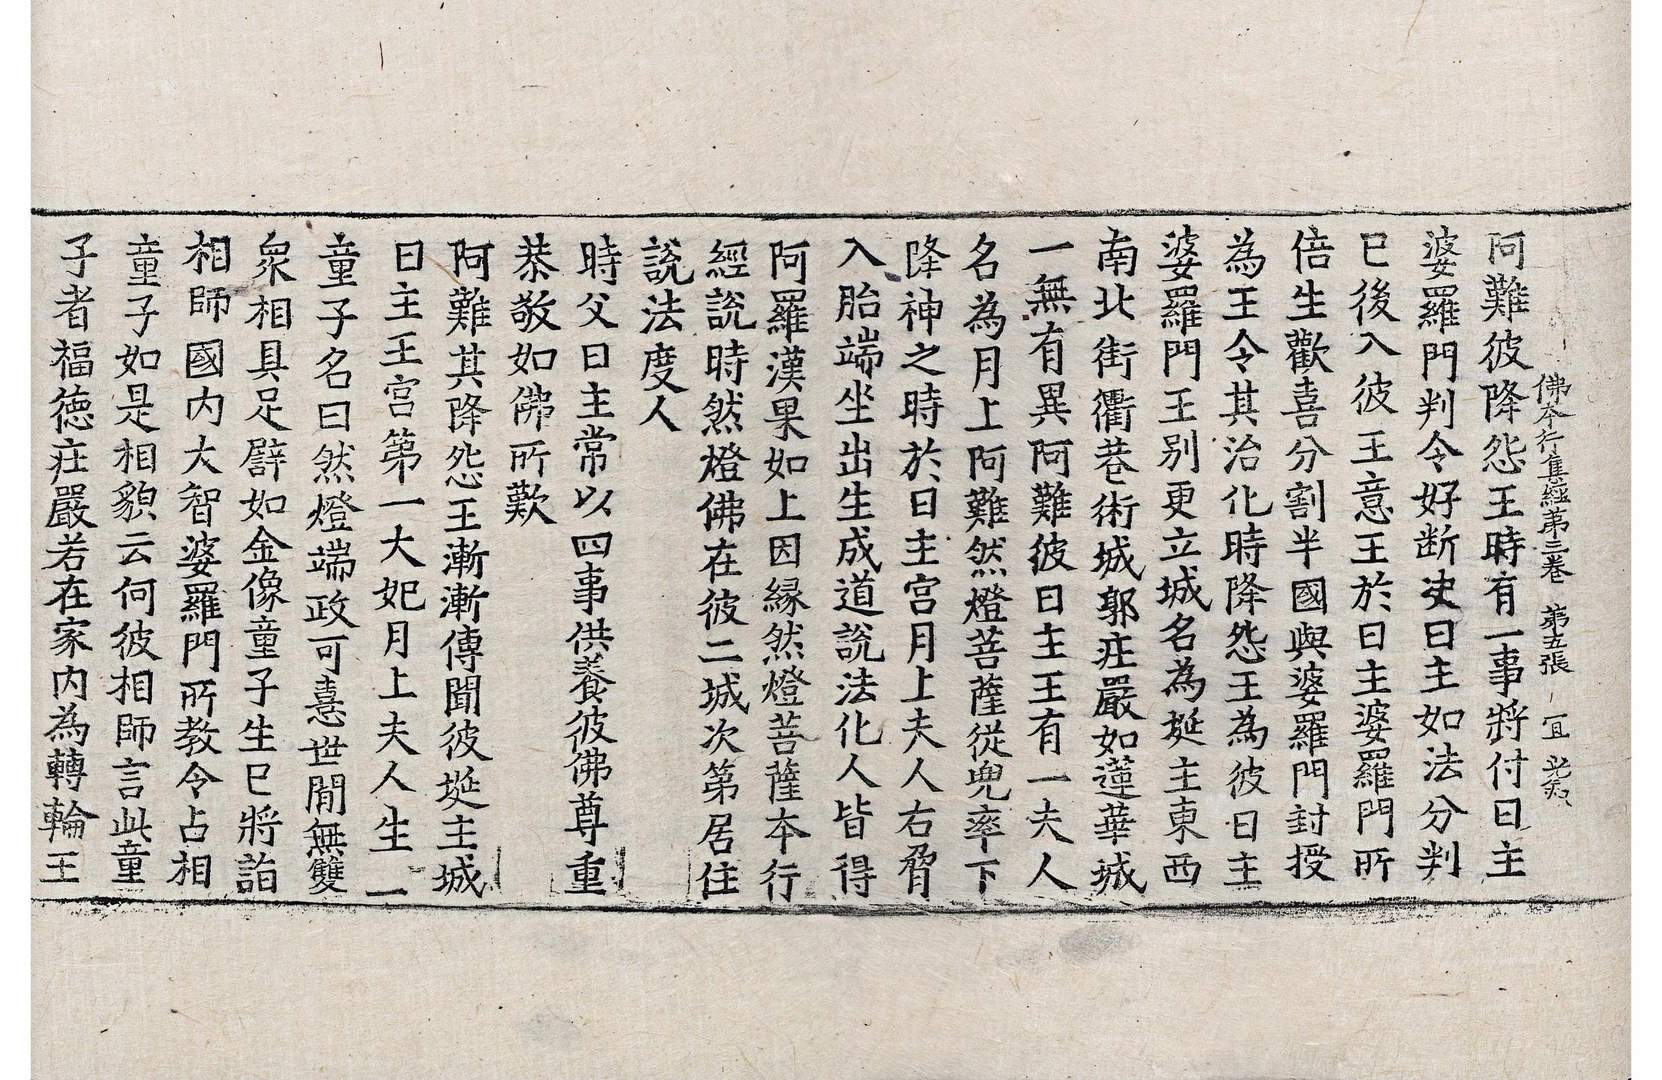 佛本行集經第三卷 第五張 宜
阿難彼降怨王時有一事將付日主
婆羅門判令好断决日主如法分判
已後入彼王意王於日主婆羅門所
倍生歡喜分割半國與婆羅門封授
為王令其治化時降怨王為彼日主
婆羅門王别更立城名為埏主東西
南北街衢巷術城郭庄嚴如蓮華城
一無有異阿難彼日主王有一夫人
名為月上阿難然燈菩薩從兜率下
降神之時於日主宮月上夫人右脅
入胎端坐出生成道說法化人皆得
阿羅漢果如上因緣然燈菩薩本行
經說時然燈佛在彼二城次第居住
說法度人
時父日主常以四事供養彼佛尊重
恭敬如佛所歎
阿難其降怨王漸漸傳聞彼埏主城
日主王宮第一大妃月上夫人生一
童子名曰然燈端政可憙世間無雙
衆相具足譬如金像童子生已將詣
相師國內大智婆羅門所教令占相
童子如是相貌云何彼相師言此童
子者福德庄嚴若在家內為轉輪王